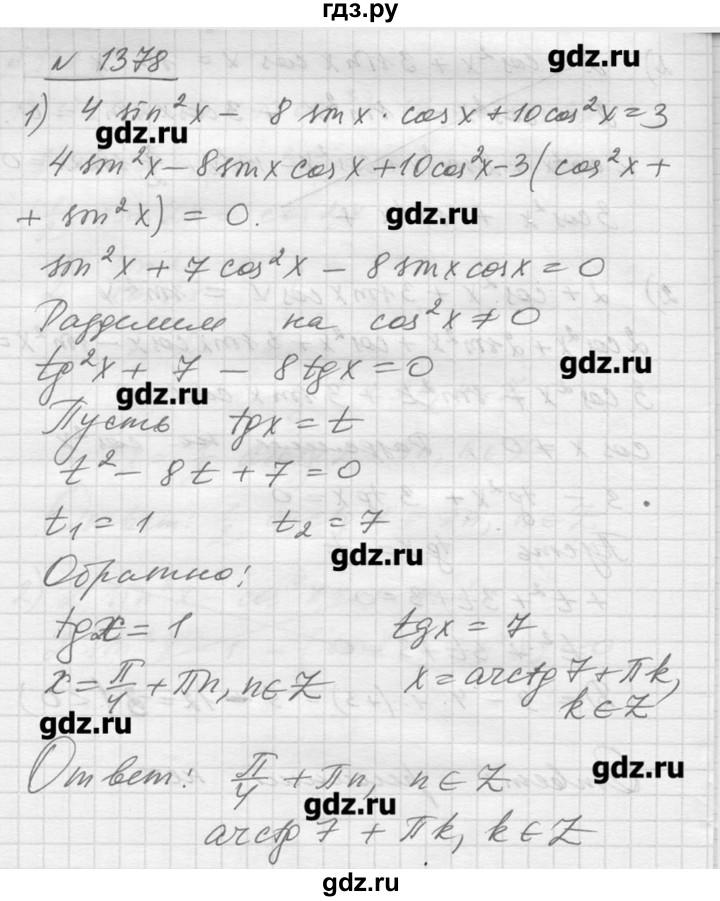 гдз.ру
N 1378
gdz.ru
1) 4 sin²x - 8 sinx · cosx + 10cos²x = 3
gdz.ru
4 sin²x - 8 sinx cosx + 10cos²x - 3(cos²x +
+ sin²x) = 0.
gdz.ru
sin²x + 7cos²x - 8sinxcosx = 0
Разделим на cos²x ≠ 0
tg²x + 7 - 8tgx = 0
gdz.ru
gdz.ru
Пусть tgx = t
t² - 8t + 7 = 0
t₁ = 1 t₂ = 7
gdz.ru
Обратно:
tgx = 1 tgx = 7
x = π/4 + πn, n∈Z x = arctg7 + πk,
k∈Z
gdz.ru
Ответ: π/4 + πn, n∈Z
gdz.ru
gdz.ru
arctg7 + πk, k∈Z
gdz.ru